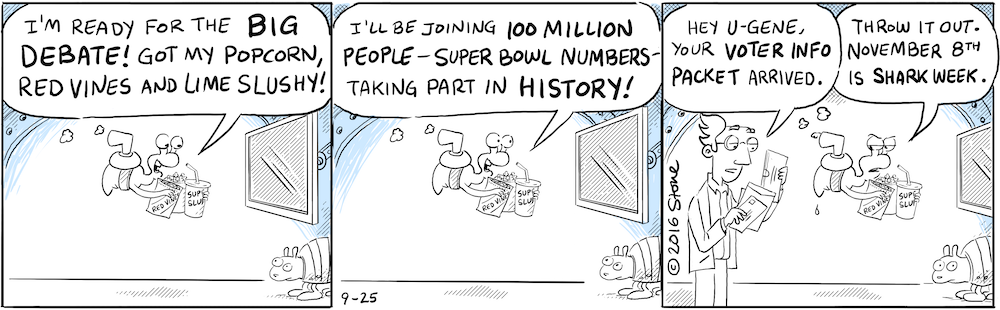 I'M READY FOR THE BIG
DEBATE! GOT MY POPCORN,
RED VINES AND LIME SLUSHY!
RED VINES
SUPE
SLUR
I'LL BE JOINING 100 MILLION
PEOPLE – SUPER BOWL NUMBERS –
TAKING PART IN HISTORY!
RED VINES
SUPE
SLUR
9-25
HEY U-GENE,
YOUR VOTER INFO
PACKET ARRIVED.
THROW IT OUT.
NOVEMBER 8TH
IS SHARK WEEK.
RED VINES
SUPE
SLUR
© 2016 Stone